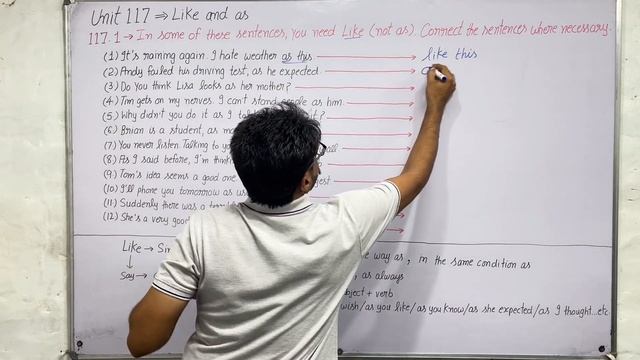 Unit 117 ⇒ Like and as
117.1 → In some of these sentences, you need Like (not as). Correct the sentences where necessary.
(1) It's raining again. I hate weather as this. → like this
(2) Andy failed his driving test, as he expected →
(3) Do You think Lisa looks as her mother? →
(4) Tim gets on my nerves. I can't stand people as him →
(5) Why didn't you do it as I it? →
(6) Brian is a student, as →
(7) You never listen. Talking to →
(8) As I said before, I'm →
(9) Tom's idea seems a good one →
(10) I'll phone you tomorrow as →
(11) Suddenly there was a →
(12) She's a very good →
Like → way as, in the same condition as
Say → , as always
+ verb
wish/as you like/as you know/as she expected/as I thought...etc.